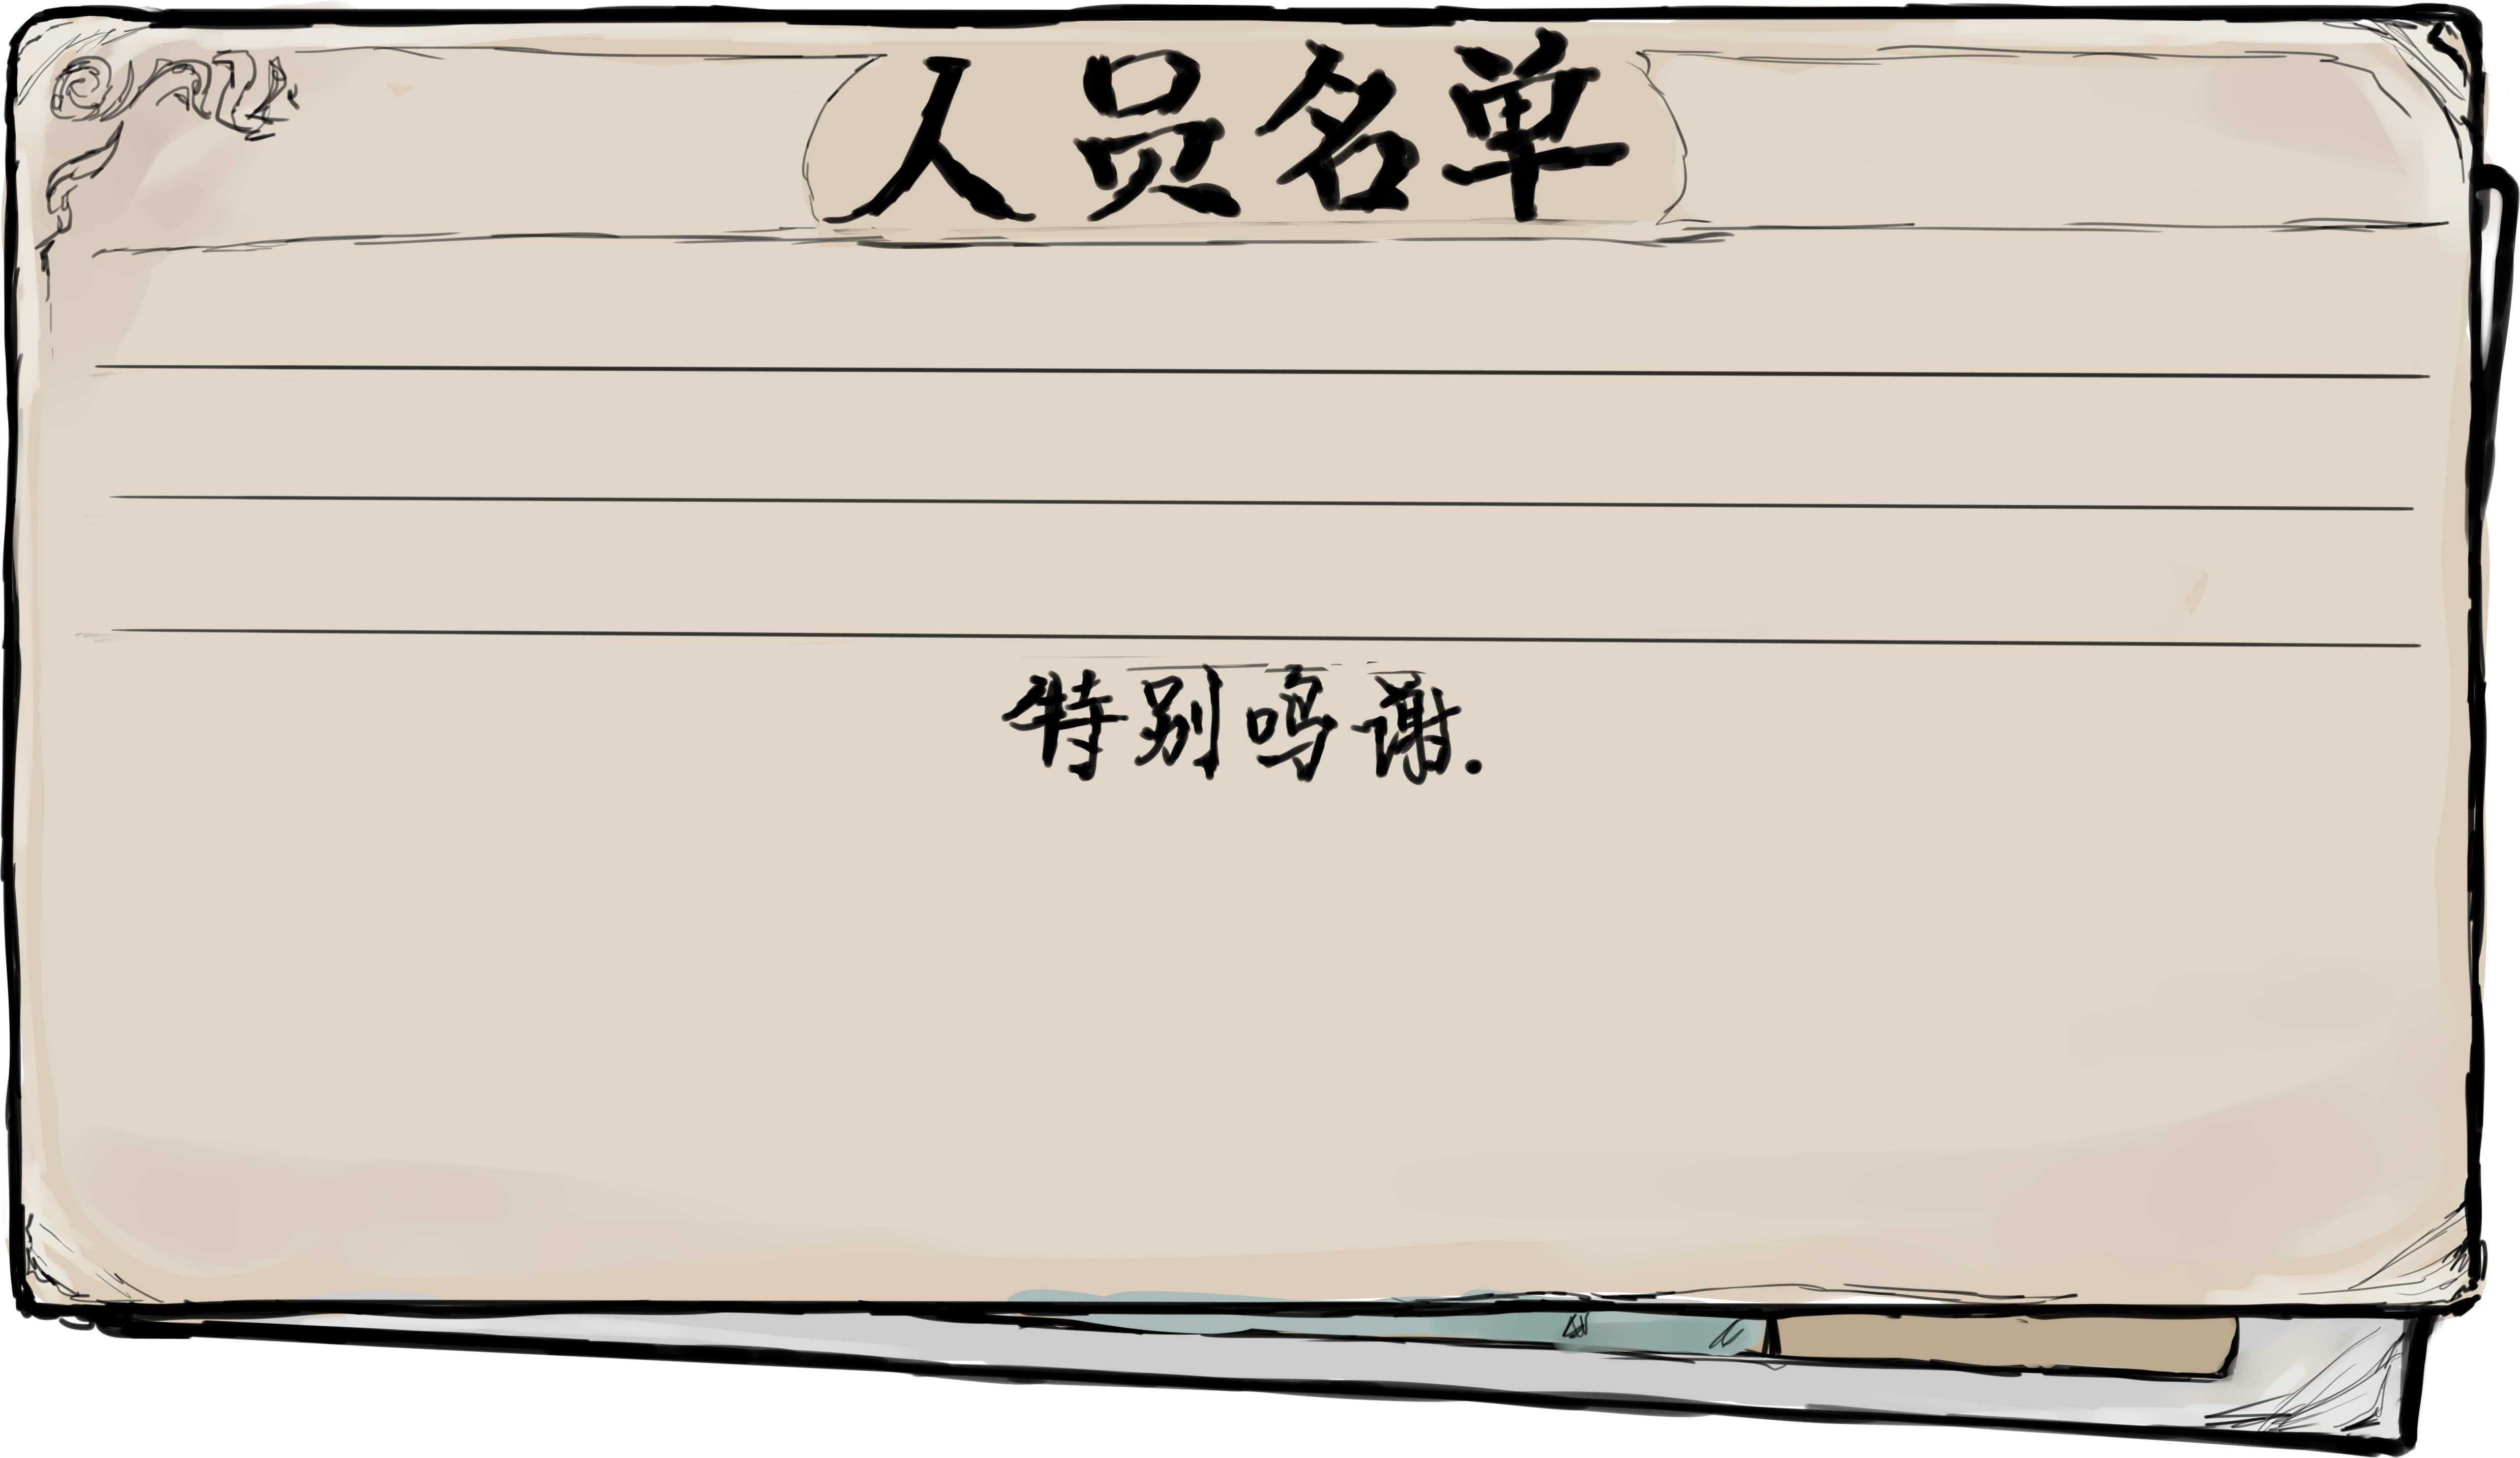 人员名单
特别鸣谢.